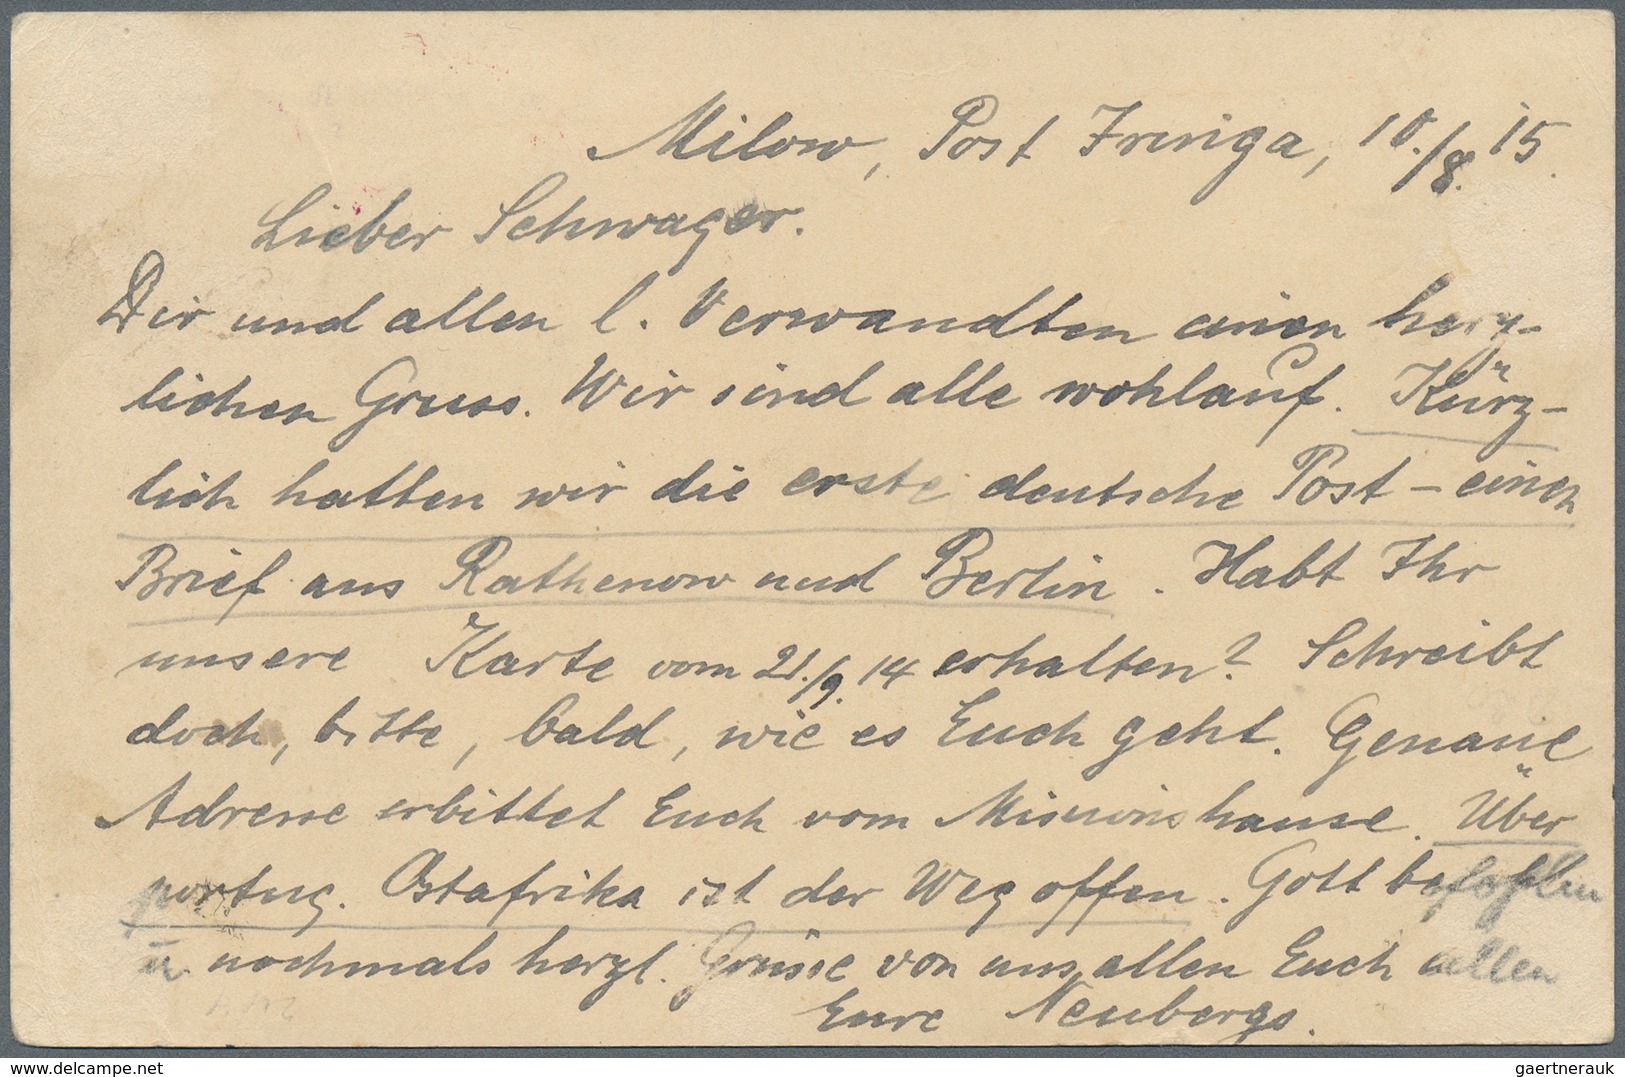 Milow, Post Iringa, 10./8. 15.
Lieber Schwager.
Dir und allen l. Verwandten einen herz-
lichen Gruss. Wir sind alle wohlauf. Kürz-
lich hatten wir die erste deutsche Post – einen
Brief aus Rathenow und Berlin. Habt Ihr
unsere Karte vom 21./9. 14 erhalten? Schreibt
doch, bitte, bald, wie es Euch geht. Genaue
Adresse erbittet Euch vom Missionshause. Über
portug. Ostafrika ist der Weg offen. Gott befohlen
u. nochmals herzl. Grüsse von uns allen Euch allen
Eure Neubergs.
www.delcampe.net
gaertnerauk